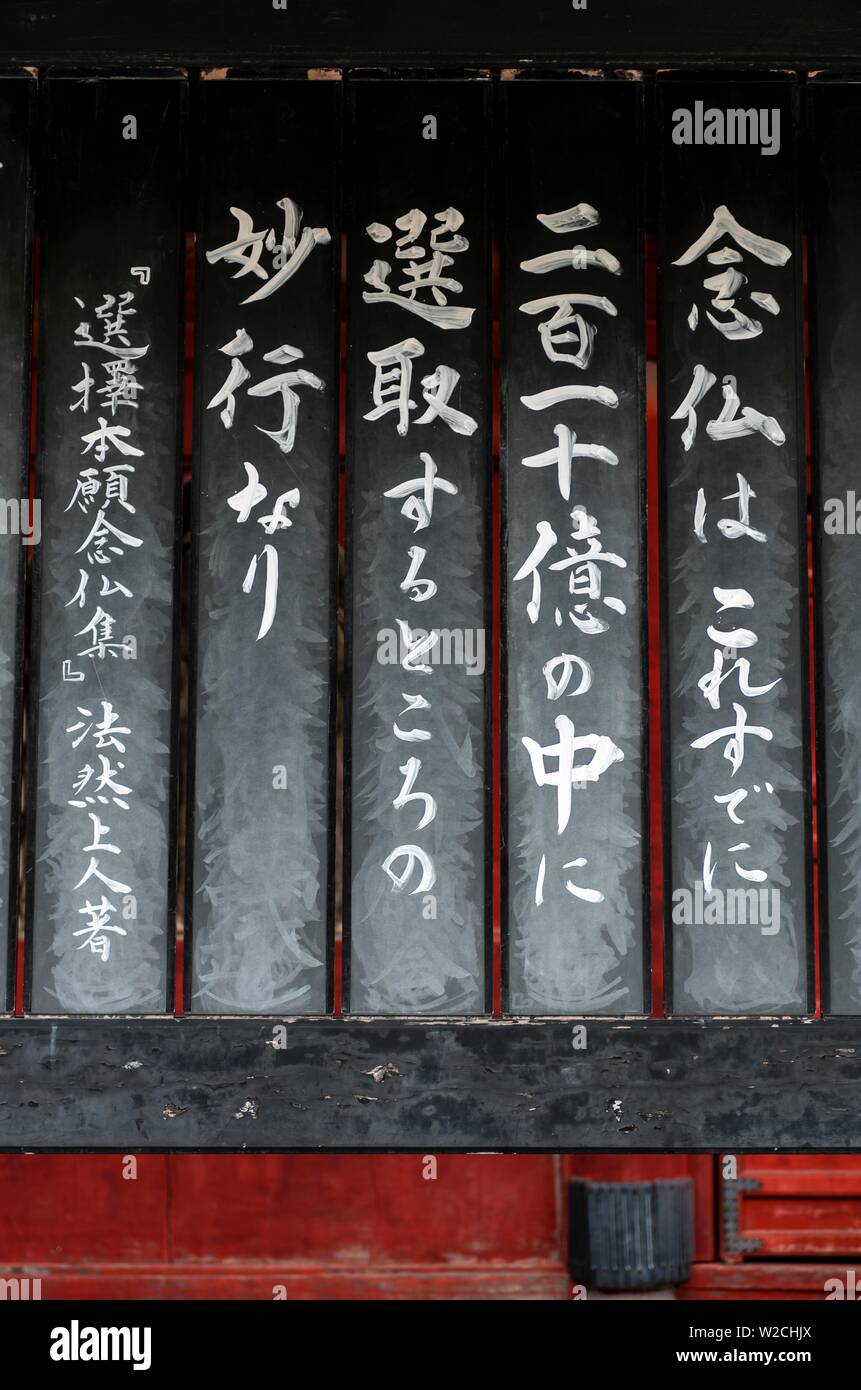 念仏はこれすでに
二百一十億の中に
選取するところの
妙行なり
『選擇本願念仏集』法然上人著
alamy
alamy
Image ID: W2CHJX
www.alamy.com